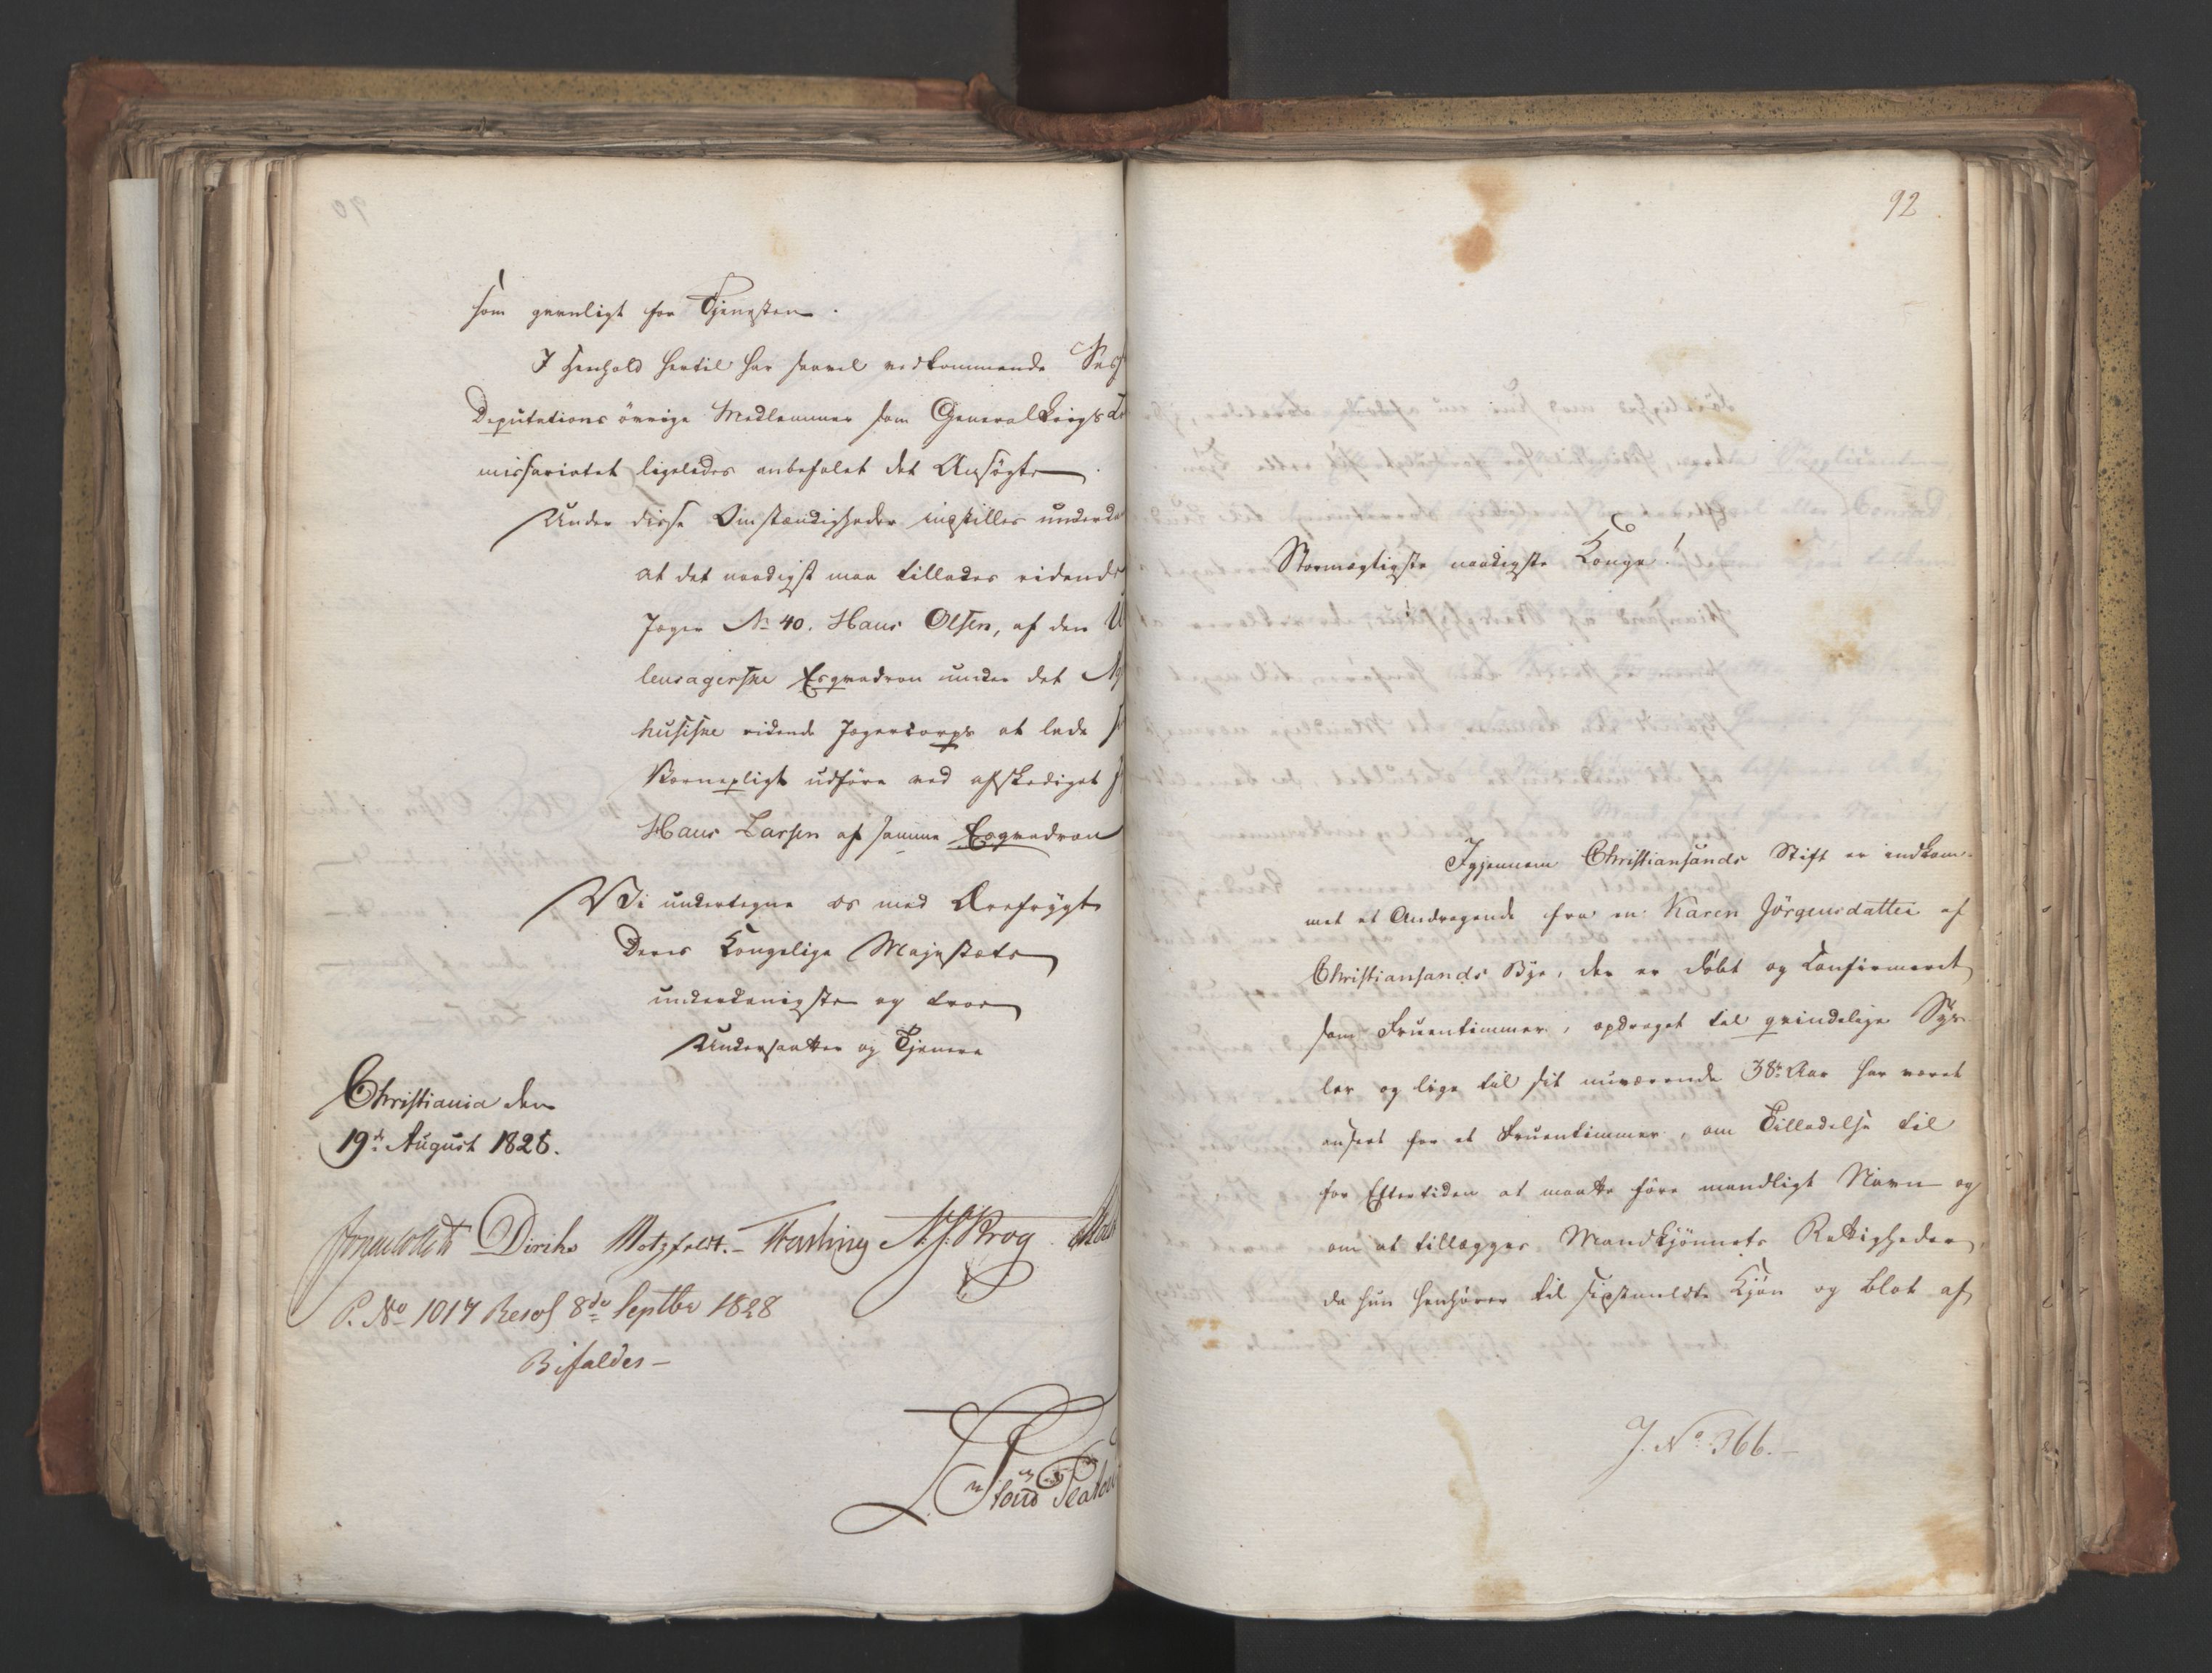 som gavnligt for Tjenesten.
I Henhold hertil har saavel vedkommende Ses
Deputations övrige Medlemmer som General Krigs Co
missariatet ligeledes anbefalet det Ansögte.
Under disse Omstændigheder instilles underda
at det naadigst maa tillades ridende
Jæger No 40. Hans Olsen, af den U
lensagerske Esqvadron under det Ag
husiske ridende Jægercorps at lade
Værnepligt udføre ved afskediget
Hans Larsen af samme Esqvadron
Vi undertegne os med Ærefrygt
Deres Kongelige Majestæts
underdanigste og troe
Undersaatter og Tjenere
Christiania den
19de August 1828.
Diriks Motzfeldt. Fasting N. J. Krog
P. No 1017 Resol 8de Septbr 1828
Bifaldes
92
Stormægtigste naadigste Konge!
Igjennem Christiansands Stift er indkom-
met et Andragende fra en Karen Jörgensdatter af
Christiansands Bye, der er döbt og Confirmeret
som Fruentimmer, opdraget til qvindelige Sys-
ler og lige til sit nuværende 38te Aar har været
anseet for et Fruentimmer, om Tilladelse til
for Eftertiden at maatte före mandligt Navn og
om at tillægges Mandkjönnets Rettigheder,
da hun henhörer til sidstmeldte Kjön og blot af
J. No 366.